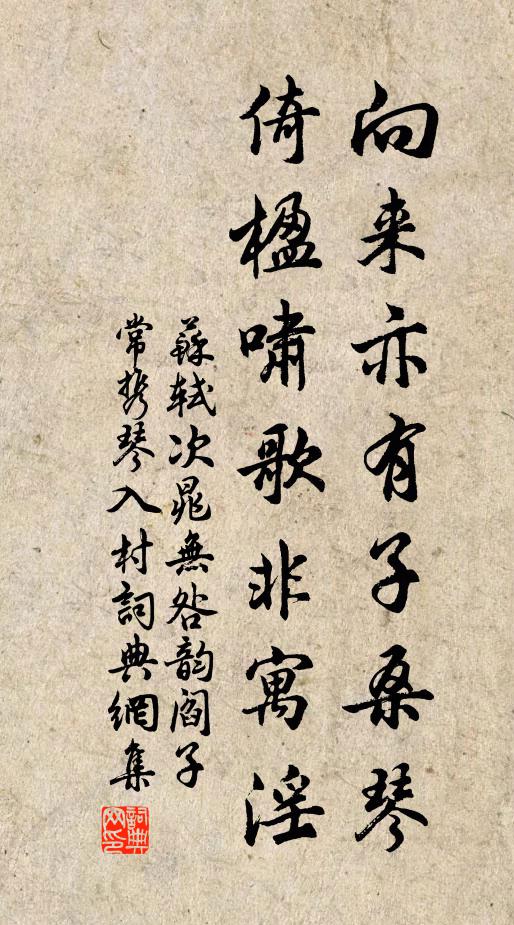 向来亦有子桑琴
倚楹啸歌非寓淫
蘇軾次晁無咎韵閻子
常携琴入村詞典網集
詞典
网印